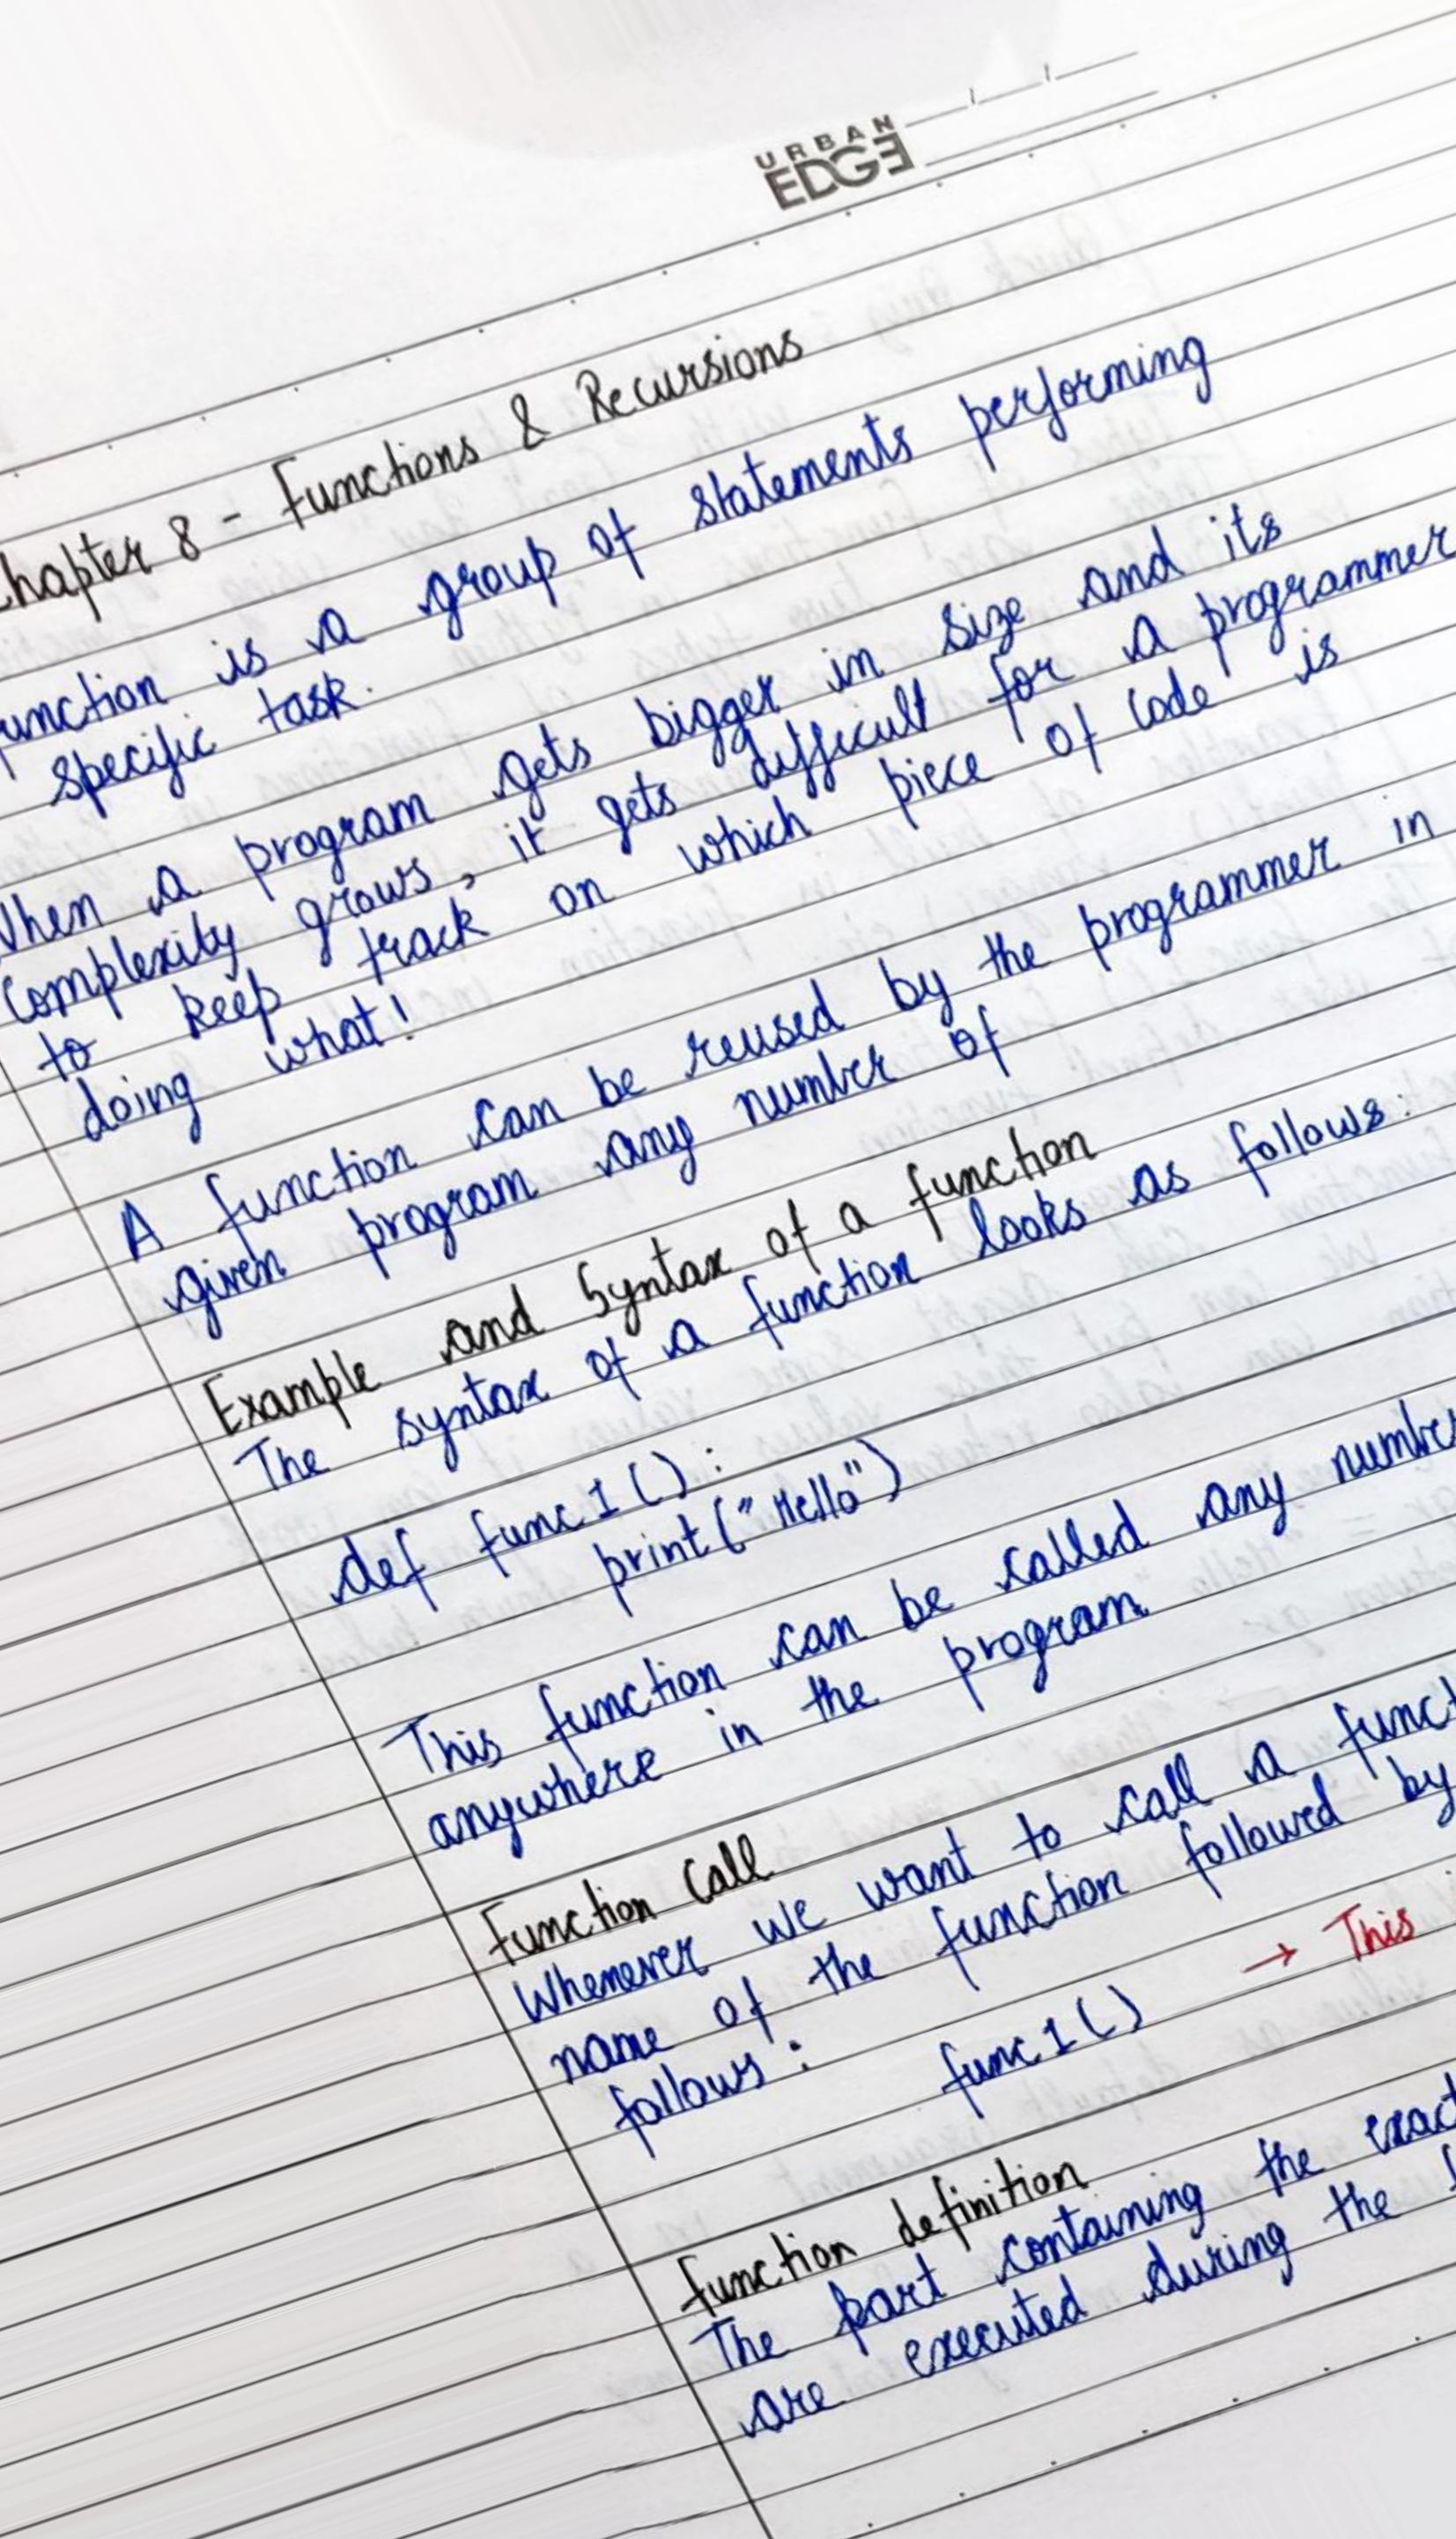 URBAN
EDGE
Chapter 8 - Functions & Recursions
function is a group of statements performing
specific task.
When a program gets bigger in size and its
Complexity grows, it gets difficult for a programmer
to keep track on which piece of code is
doing what!
A function can be reused by the programmer in
given program any number of
Example and Syntax of a function
The syntax of a function looks as follows:
def func1():
print("Hello")
This function can be called any number
anywhere in the program.
Function Call
Whenever we want to call a funct
name of the function followed by
follows: func1() → This
function definition
The part containing the exact
are executed during the